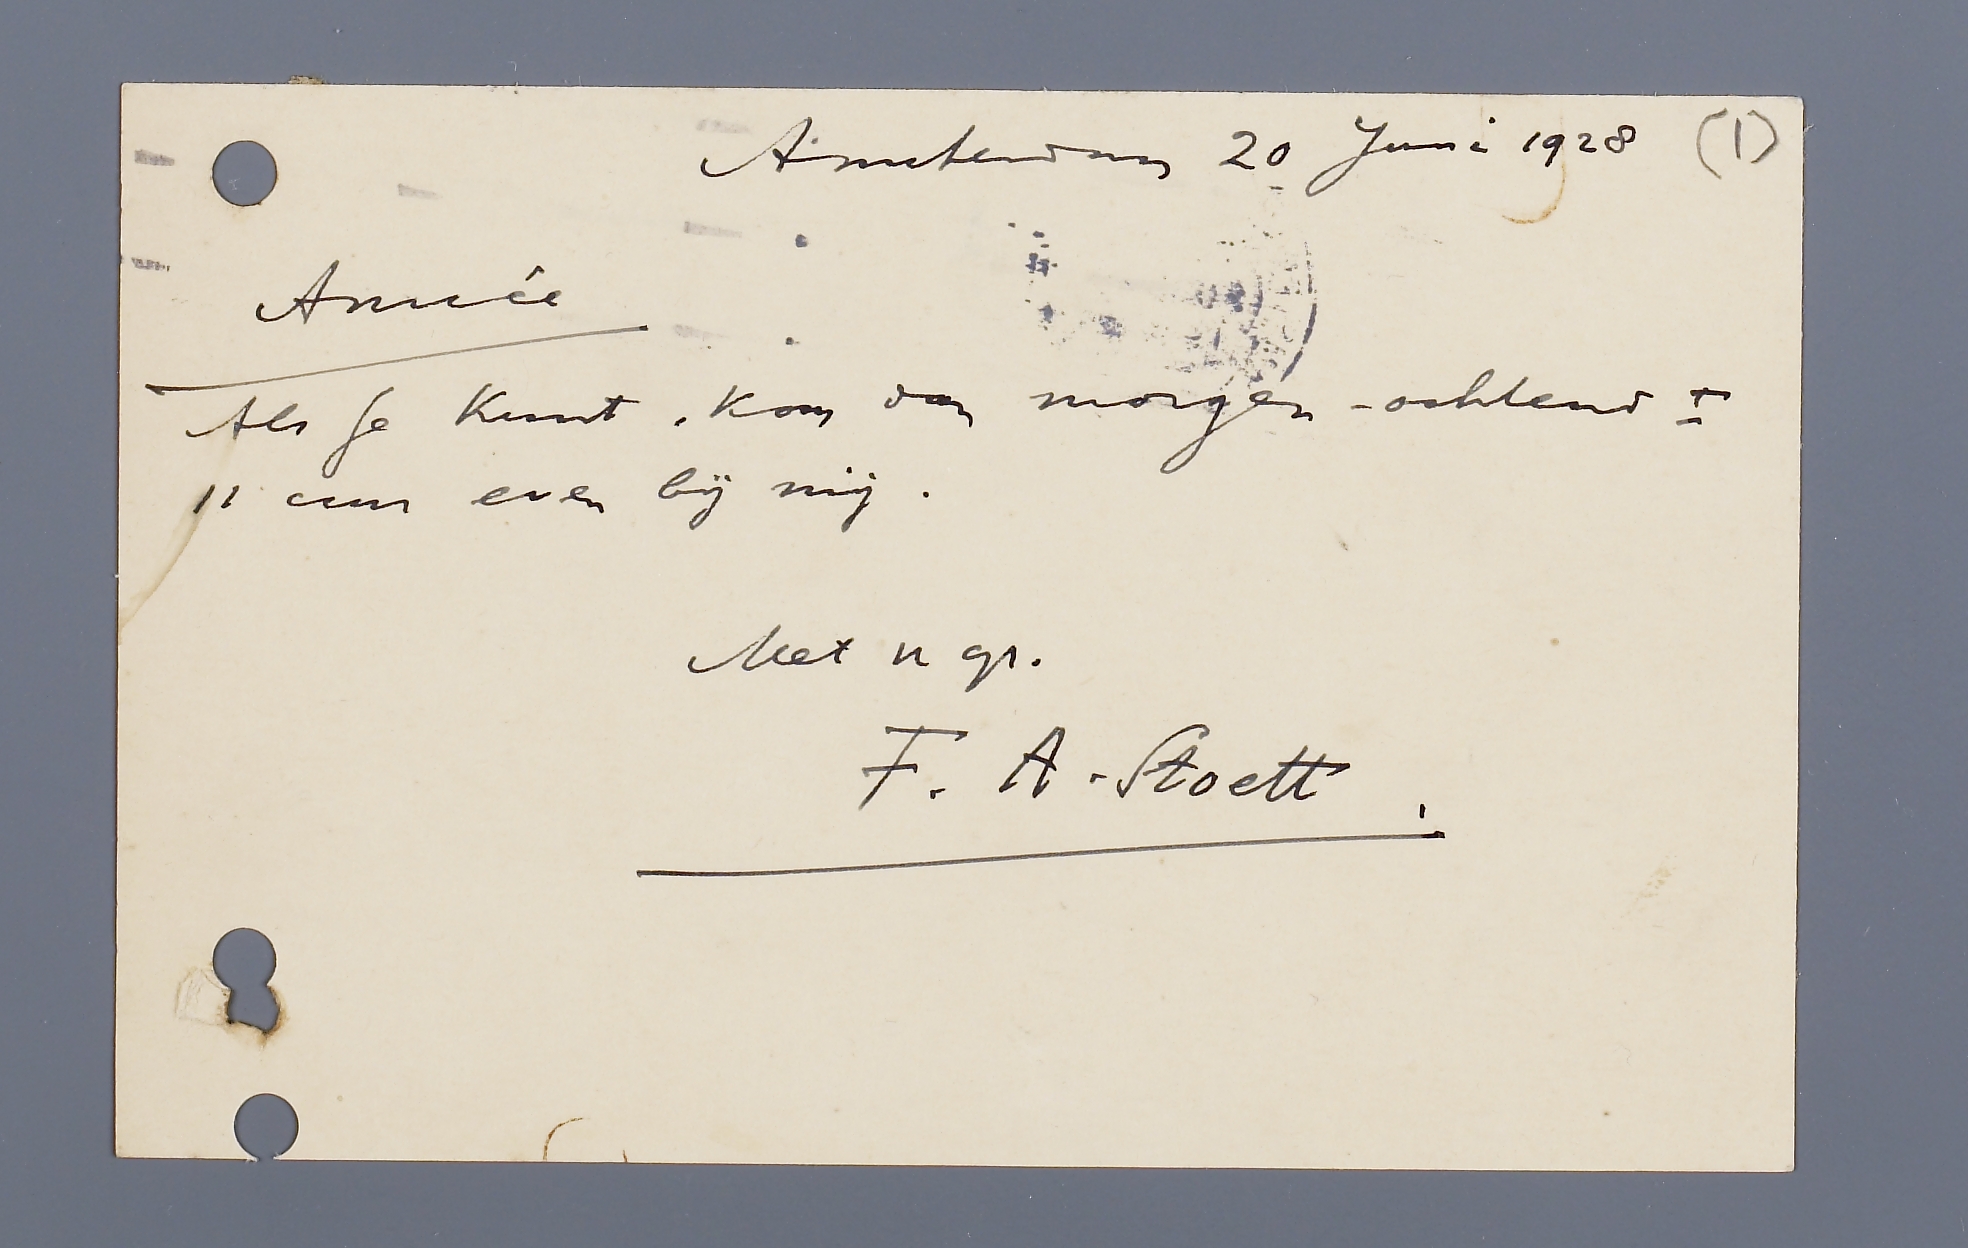 Amsterdam 20 Juni 1928 (1)
Amice
Als je kunt, kom dan morgen-ochtend ±
11 uur even bij mij.
Met vr gr.
F. A. Stoett.